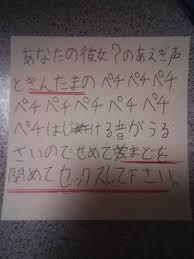 あなたの彼女?のあえぎ声
ときんたまのペチペチ
ペチペチペチペチペチ
ペチはじける音がう
さいのでせめてまどを
閉めてセックスして下さい。